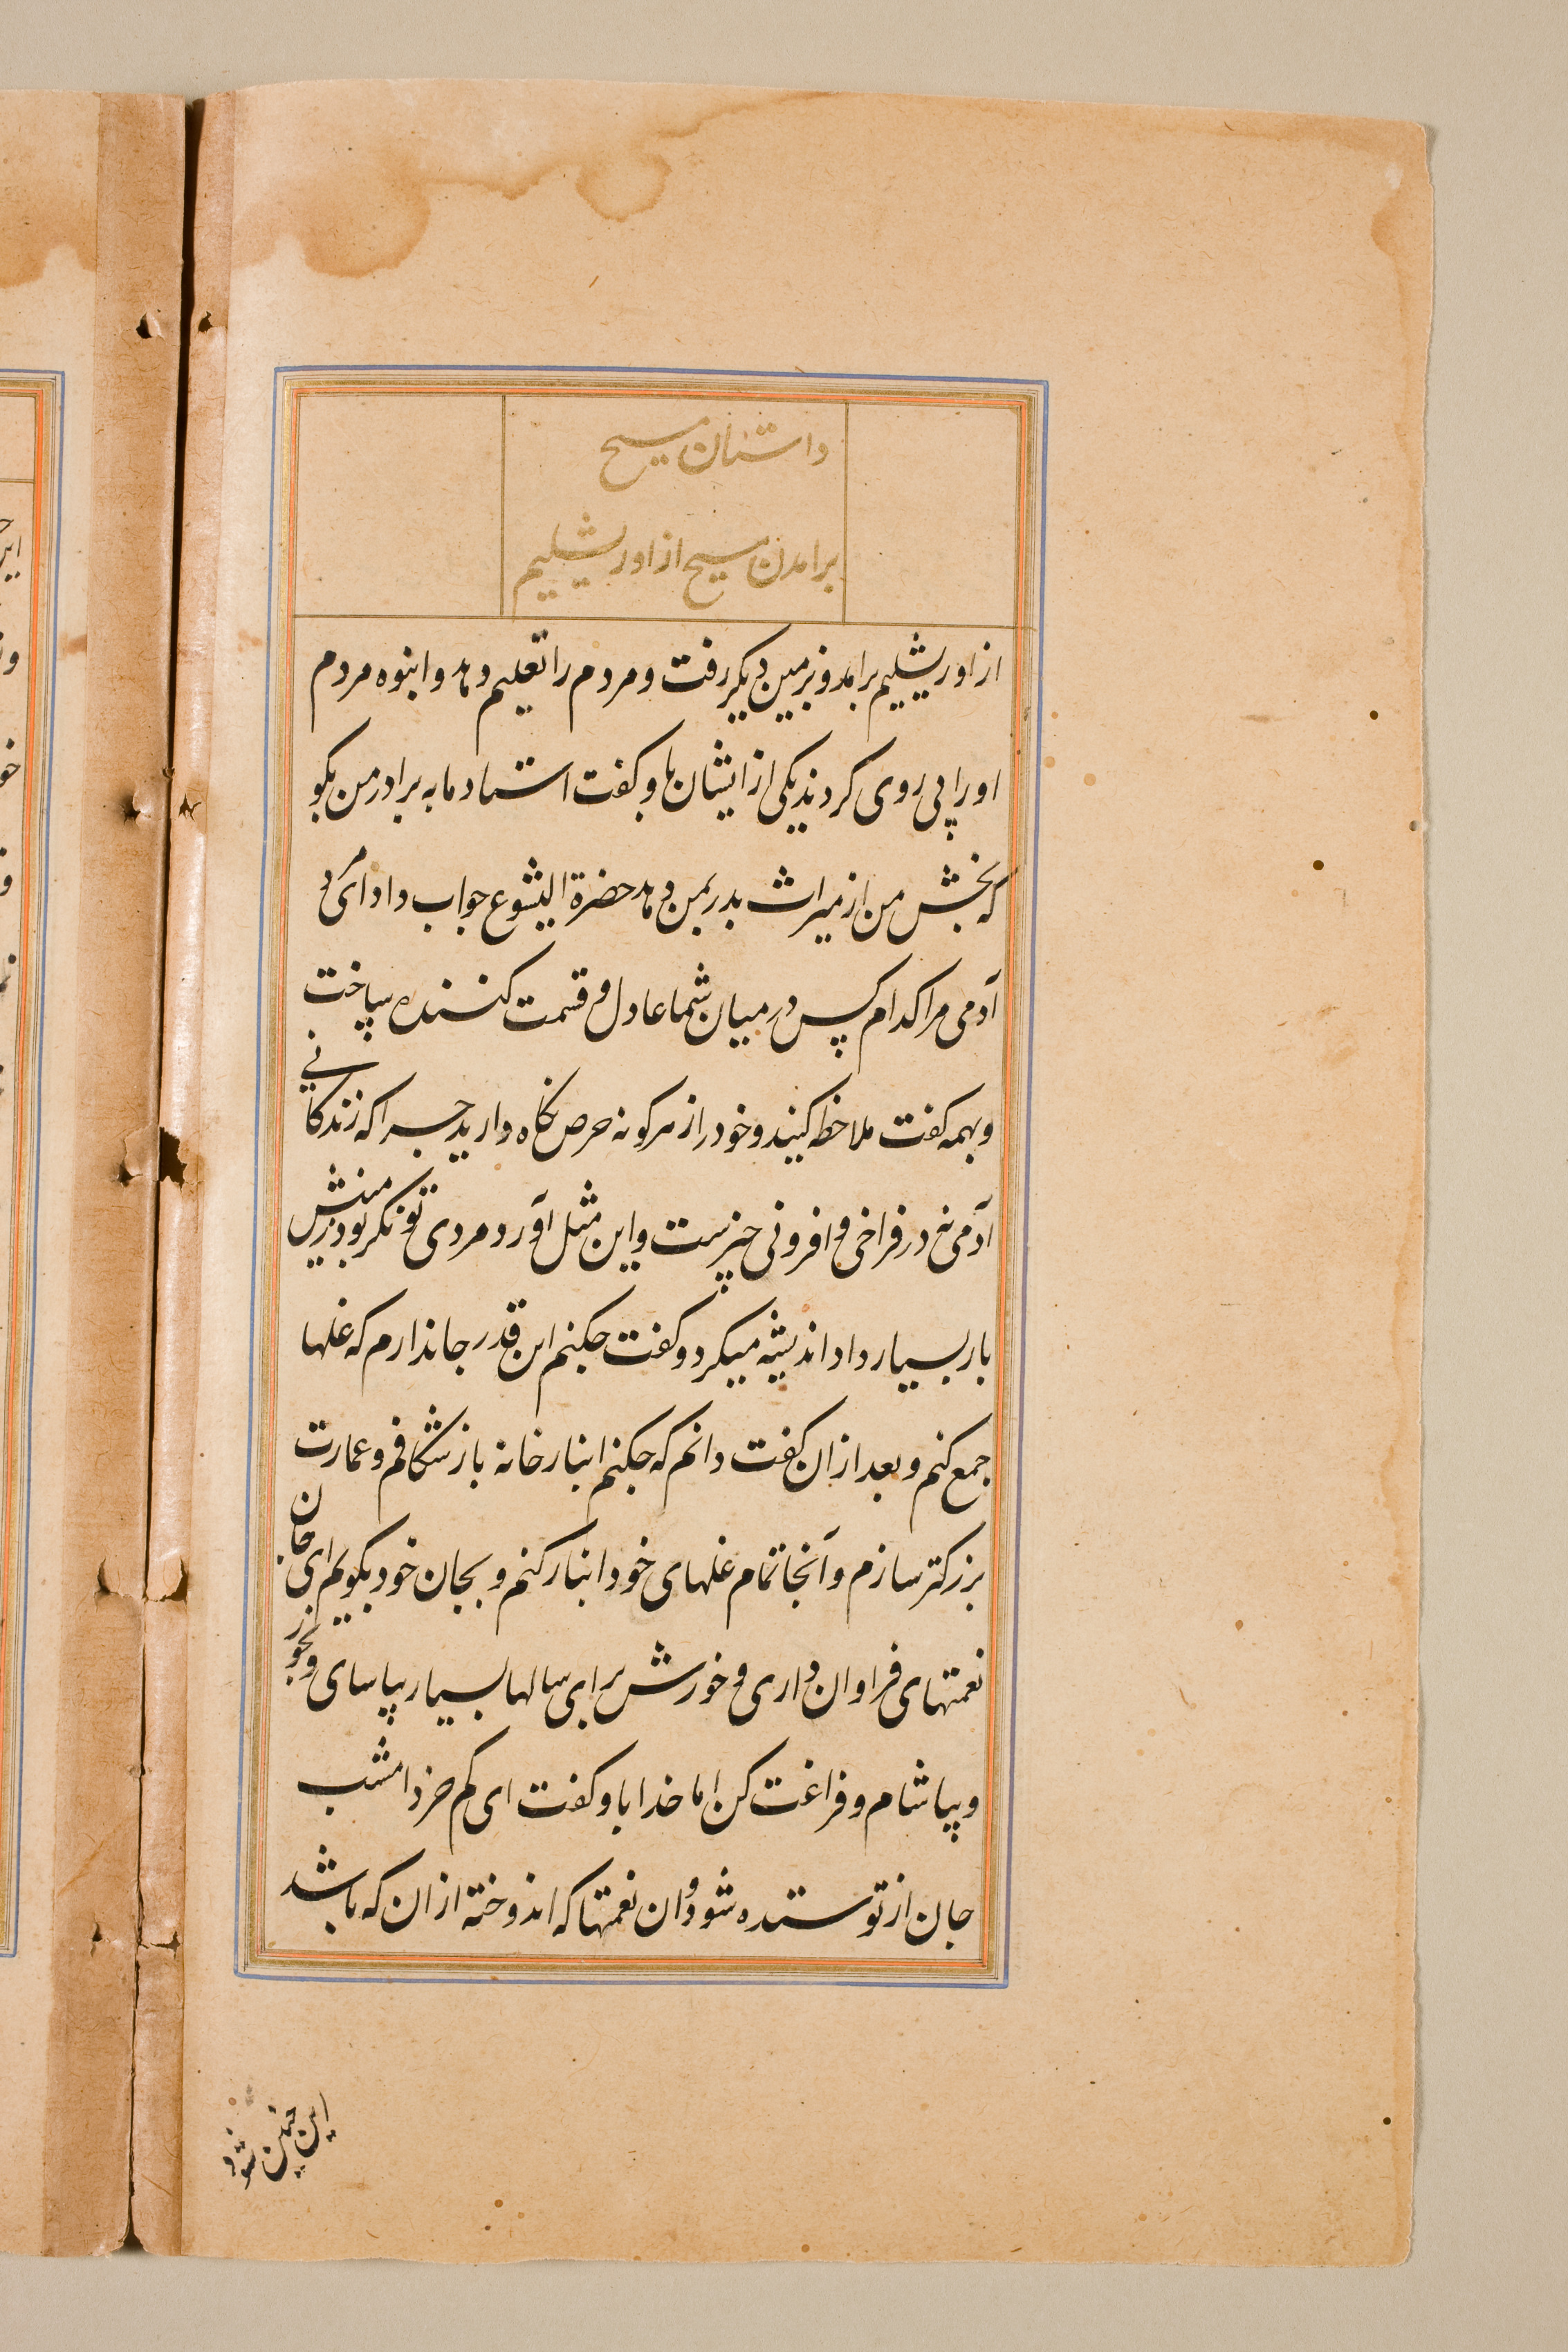 داستان مسیح
برامدن مسیح از اورشلیم
از اورشلیم برامد و بزمین دیکر رفت و مردم را تعلیم دهد و انبوه مردم
او را پی روی کردند یکی از ایشان باو کفت استاد ما به برادر من بکو
که بخش من از میراث پدر بمن دهد حضرة ایشوع جواب داد ای مرد
آدمی مرا کدام کس در میان شما عادل و قسمت کننده ساخت
و بهمه کفت ملاحظه کنید و خود را از هر کونه حرص نکاه دارید چرا که زندکانی
آدمی نه در فراخی و افزونی چیزست و این مثل آورد مردی تونکر بود زمینش
بار بسیار داد اندیشه میکرد و کفت چکنم این قدر جا ندارم که غلها
جمع کنم و بعد ازان کفت دانم که چکنم انبار خانه باز شکافم و عمارت
بزرکتر سازم و آنجا تمام غلهای خود انبار کنم و بجان خود بکویم ای جان
نعمتهای فراوان داری و خورش برای سالها بسیار بیاسای و بخور
و بیاشام و فراغت کن اما خدا باو کفت ای کم خرد امشب
جان از تو ستده شود و ان نعمتها که اندوخته ازان که باشد
این چنین شود